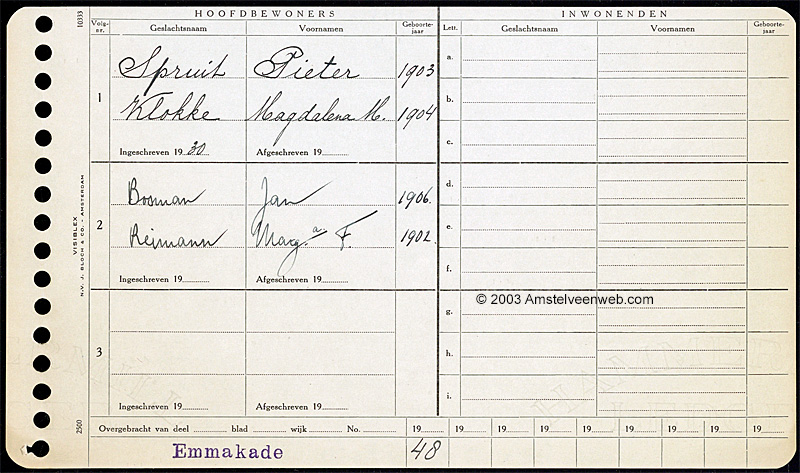 HOOFDBEWONERS INWONENDEN
Volg-nr. Geslachtsnaam Voornamen Geboorte-jaar Lett. Geslachtsnaam Voornamen Geboorte-jaar
1 Spruit Pieter 1903
Klokke Magdalena M. 1904
Ingeschreven 19 30 Afgeschreven 19
2 Bosman Jan 1906.
Reimann Marg.a F. 1902
Ingeschreven 19 Afgeschreven 19
3
Ingeschreven 19 Afgeschreven 19
a.
b.
c.
d.
e.
f.
© 2003 Amstelveenweb.com
g.
h.
i.
Overgebracht van deel blad wijk No. 19 19 19 19 19 19 19 19 19
Emmakade 48
10333
VISIBLEX
N.V. J. BLOCH & CO. - AMSTERDAM
2500